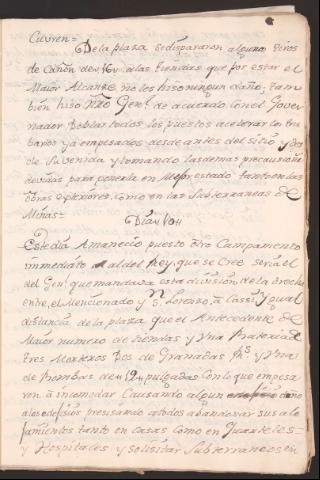 Cuvren=
De la plaza se dispararon algunos tiros
de Cañon de 16 a las tiendas que por estar el
Maior Alcanze no les hiso ningun daño; tam
bien hiso Nro Genl. de acuerdo con el Gover
nador Doblar todos los puestos acelerar los tra
bavos ya empesados desde antes del sitio, y
de su venida y tomando las demas precausione
devidas para ponerla en Mejor estado tanto en las
obras exteriores, como en las Subterraneas de
Minas=
Dia 10
Este dia Amanecio puesto otro Campamento
immediato al del Rey, que se cree seria el
del Genl. que mandava esta division de la brecha
entre, el Mencionado y Sn. Lorenzo, a Cassi Ygual
distancia de la plaza que el Antecedente de
Maior numero de tiendas y Vna Bateria de
tres Morteros Dos de Granadas Rs. y Vna
de Bombas de 12 pulgadas Con lo que empesa
ron â incomodar Causando algun daño
a los edefisios presisando atodos abandonar sus alo
jamientos tanto en casas Como en Quarteles=
y Hospitales y solisitar Subterraneos en